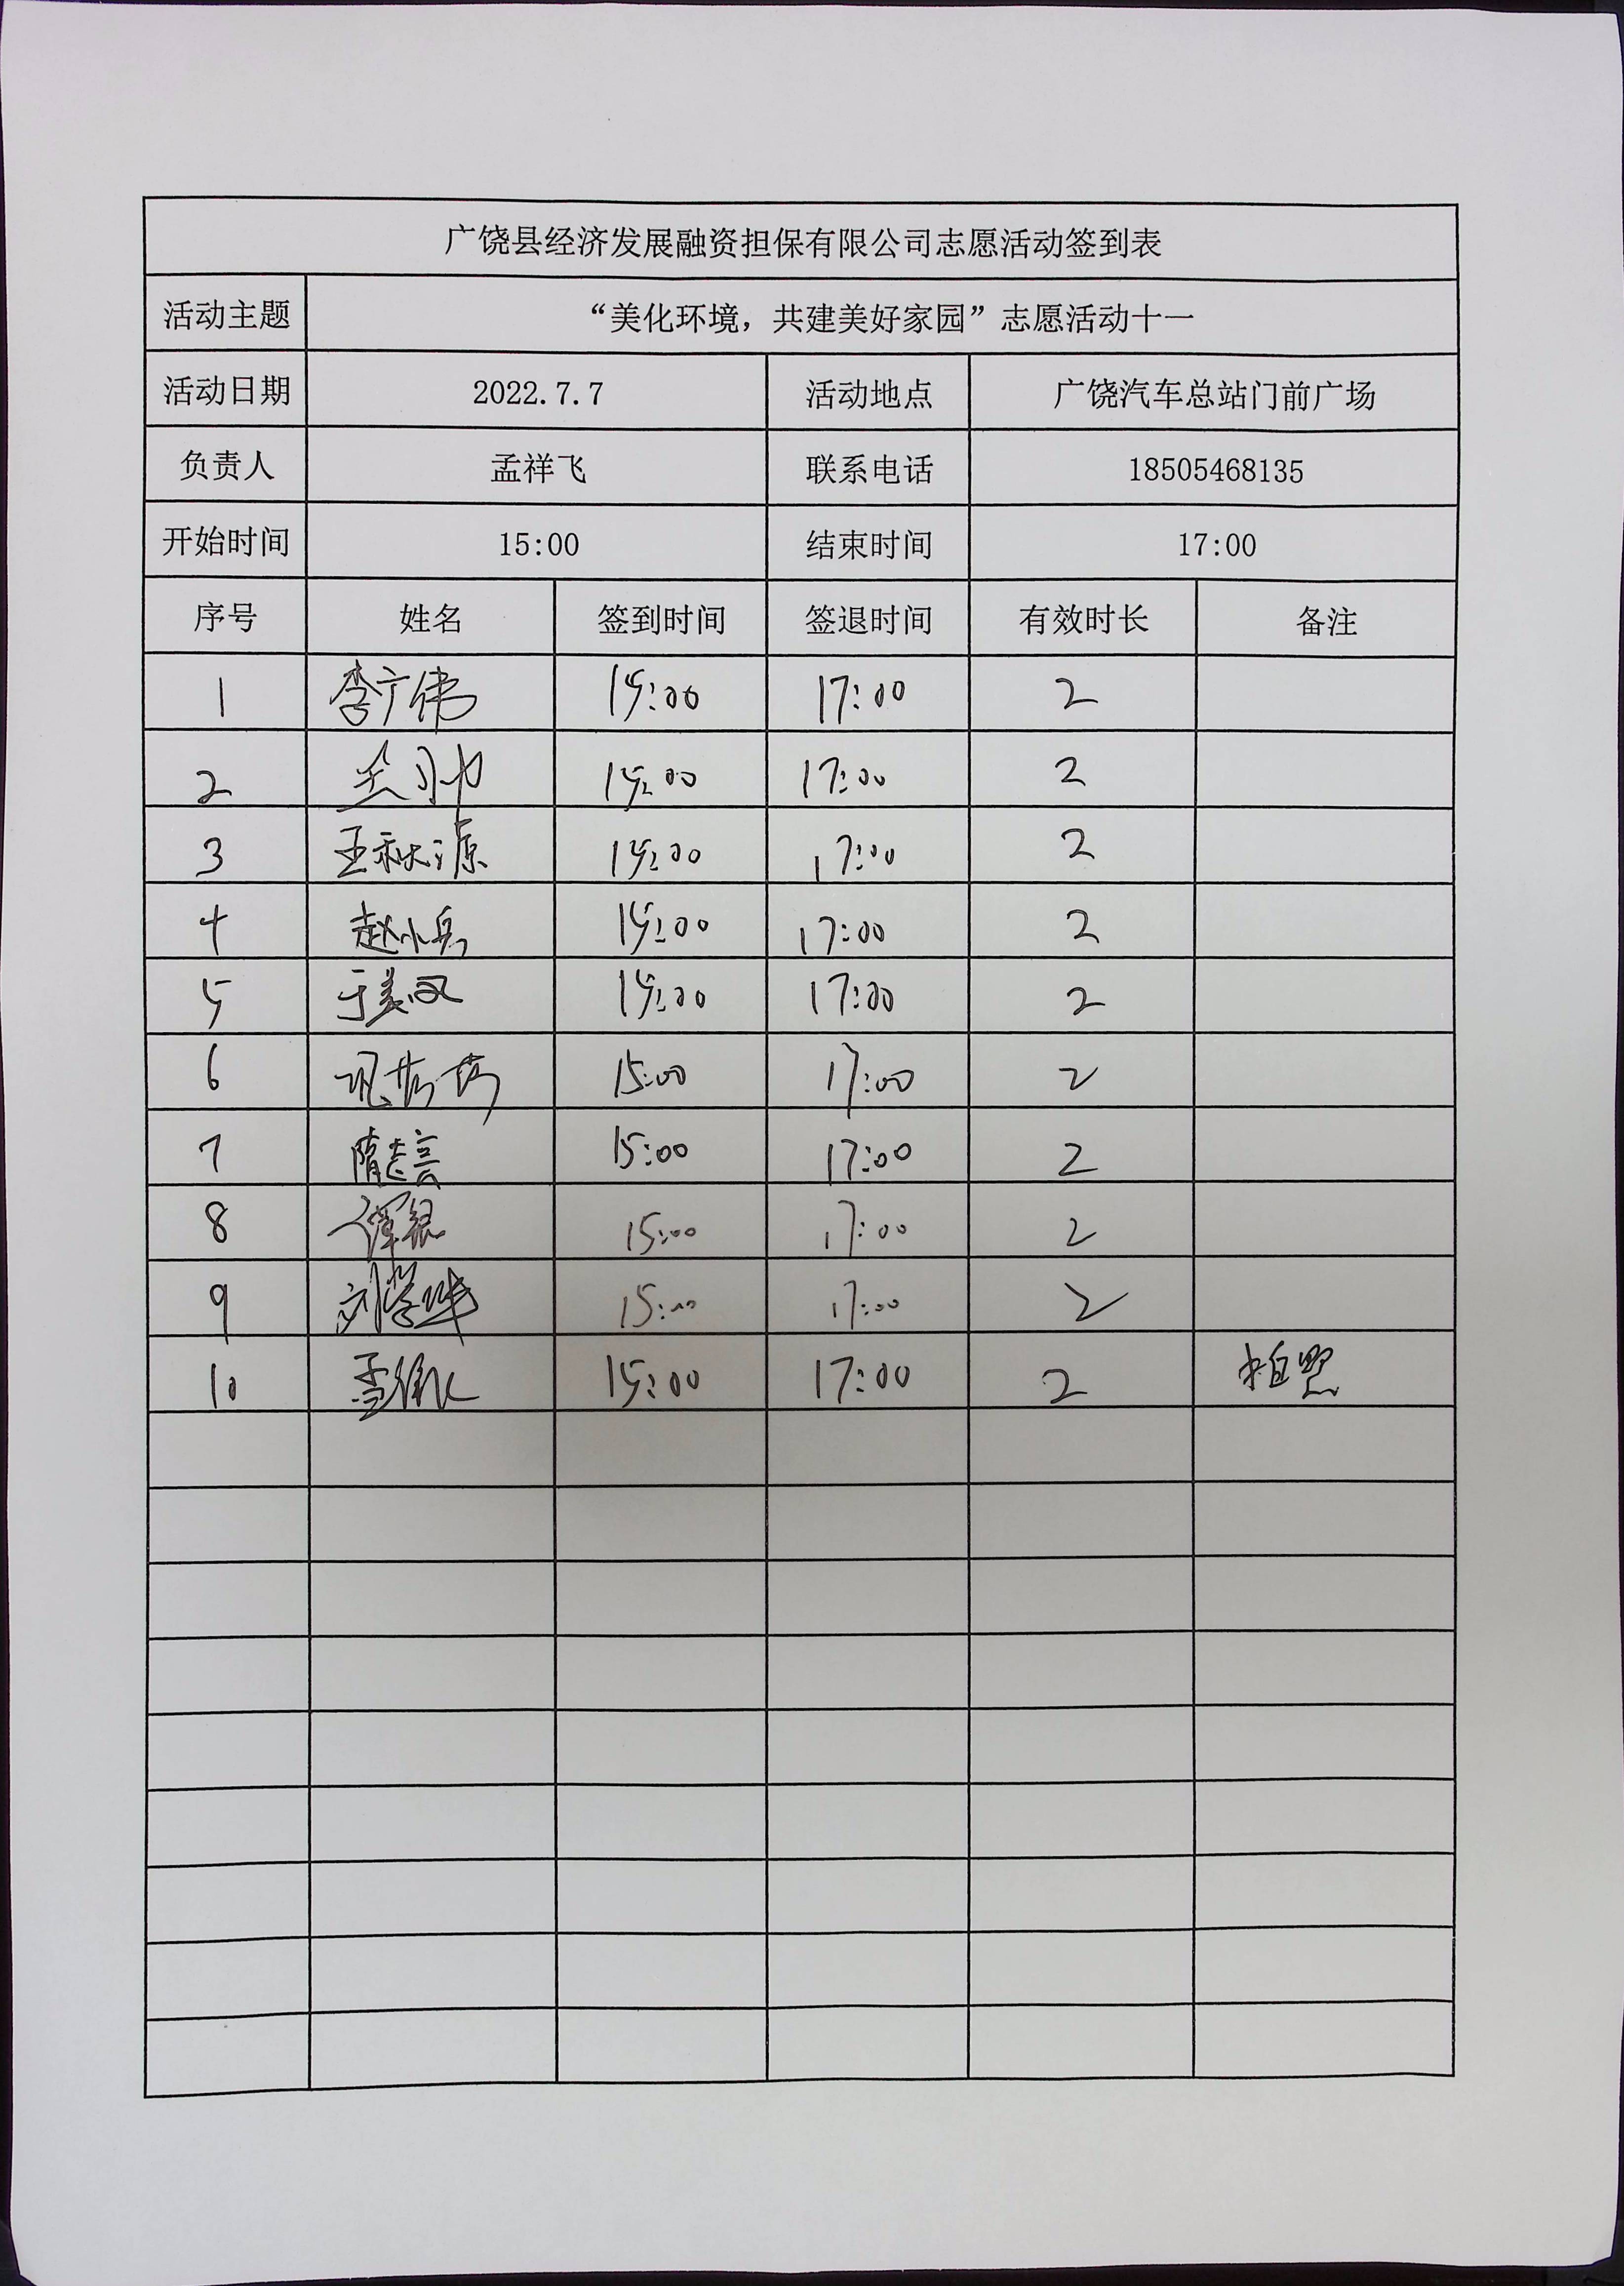 广饶县经济发展融资担保有限公司志愿活动签到表
活动主题 “美化环境，共建美好家园”志愿活动十一
活动日期 2022.7.7 活动地点 广饶汽车总站门前广场
负责人 孟祥飞 联系电话 18505468135
开始时间 15:00 结束时间 17:00
序号 姓名 签到时间 签退时间 有效时长 备注
1 李广伟 15:00 17:00 2
2 15:00 17:00 2
3 王秋源 15:00 17:00 2
4 赵小兵 15:00 17:00 2
5 于美双 15:00 17:00 2
6 15:00 17:00 2
7 隋志芸 15:00 17:00 2
8 15:00 17:00 2
9 15:00 17:00 2
10 15:00 17:00 2 拍照